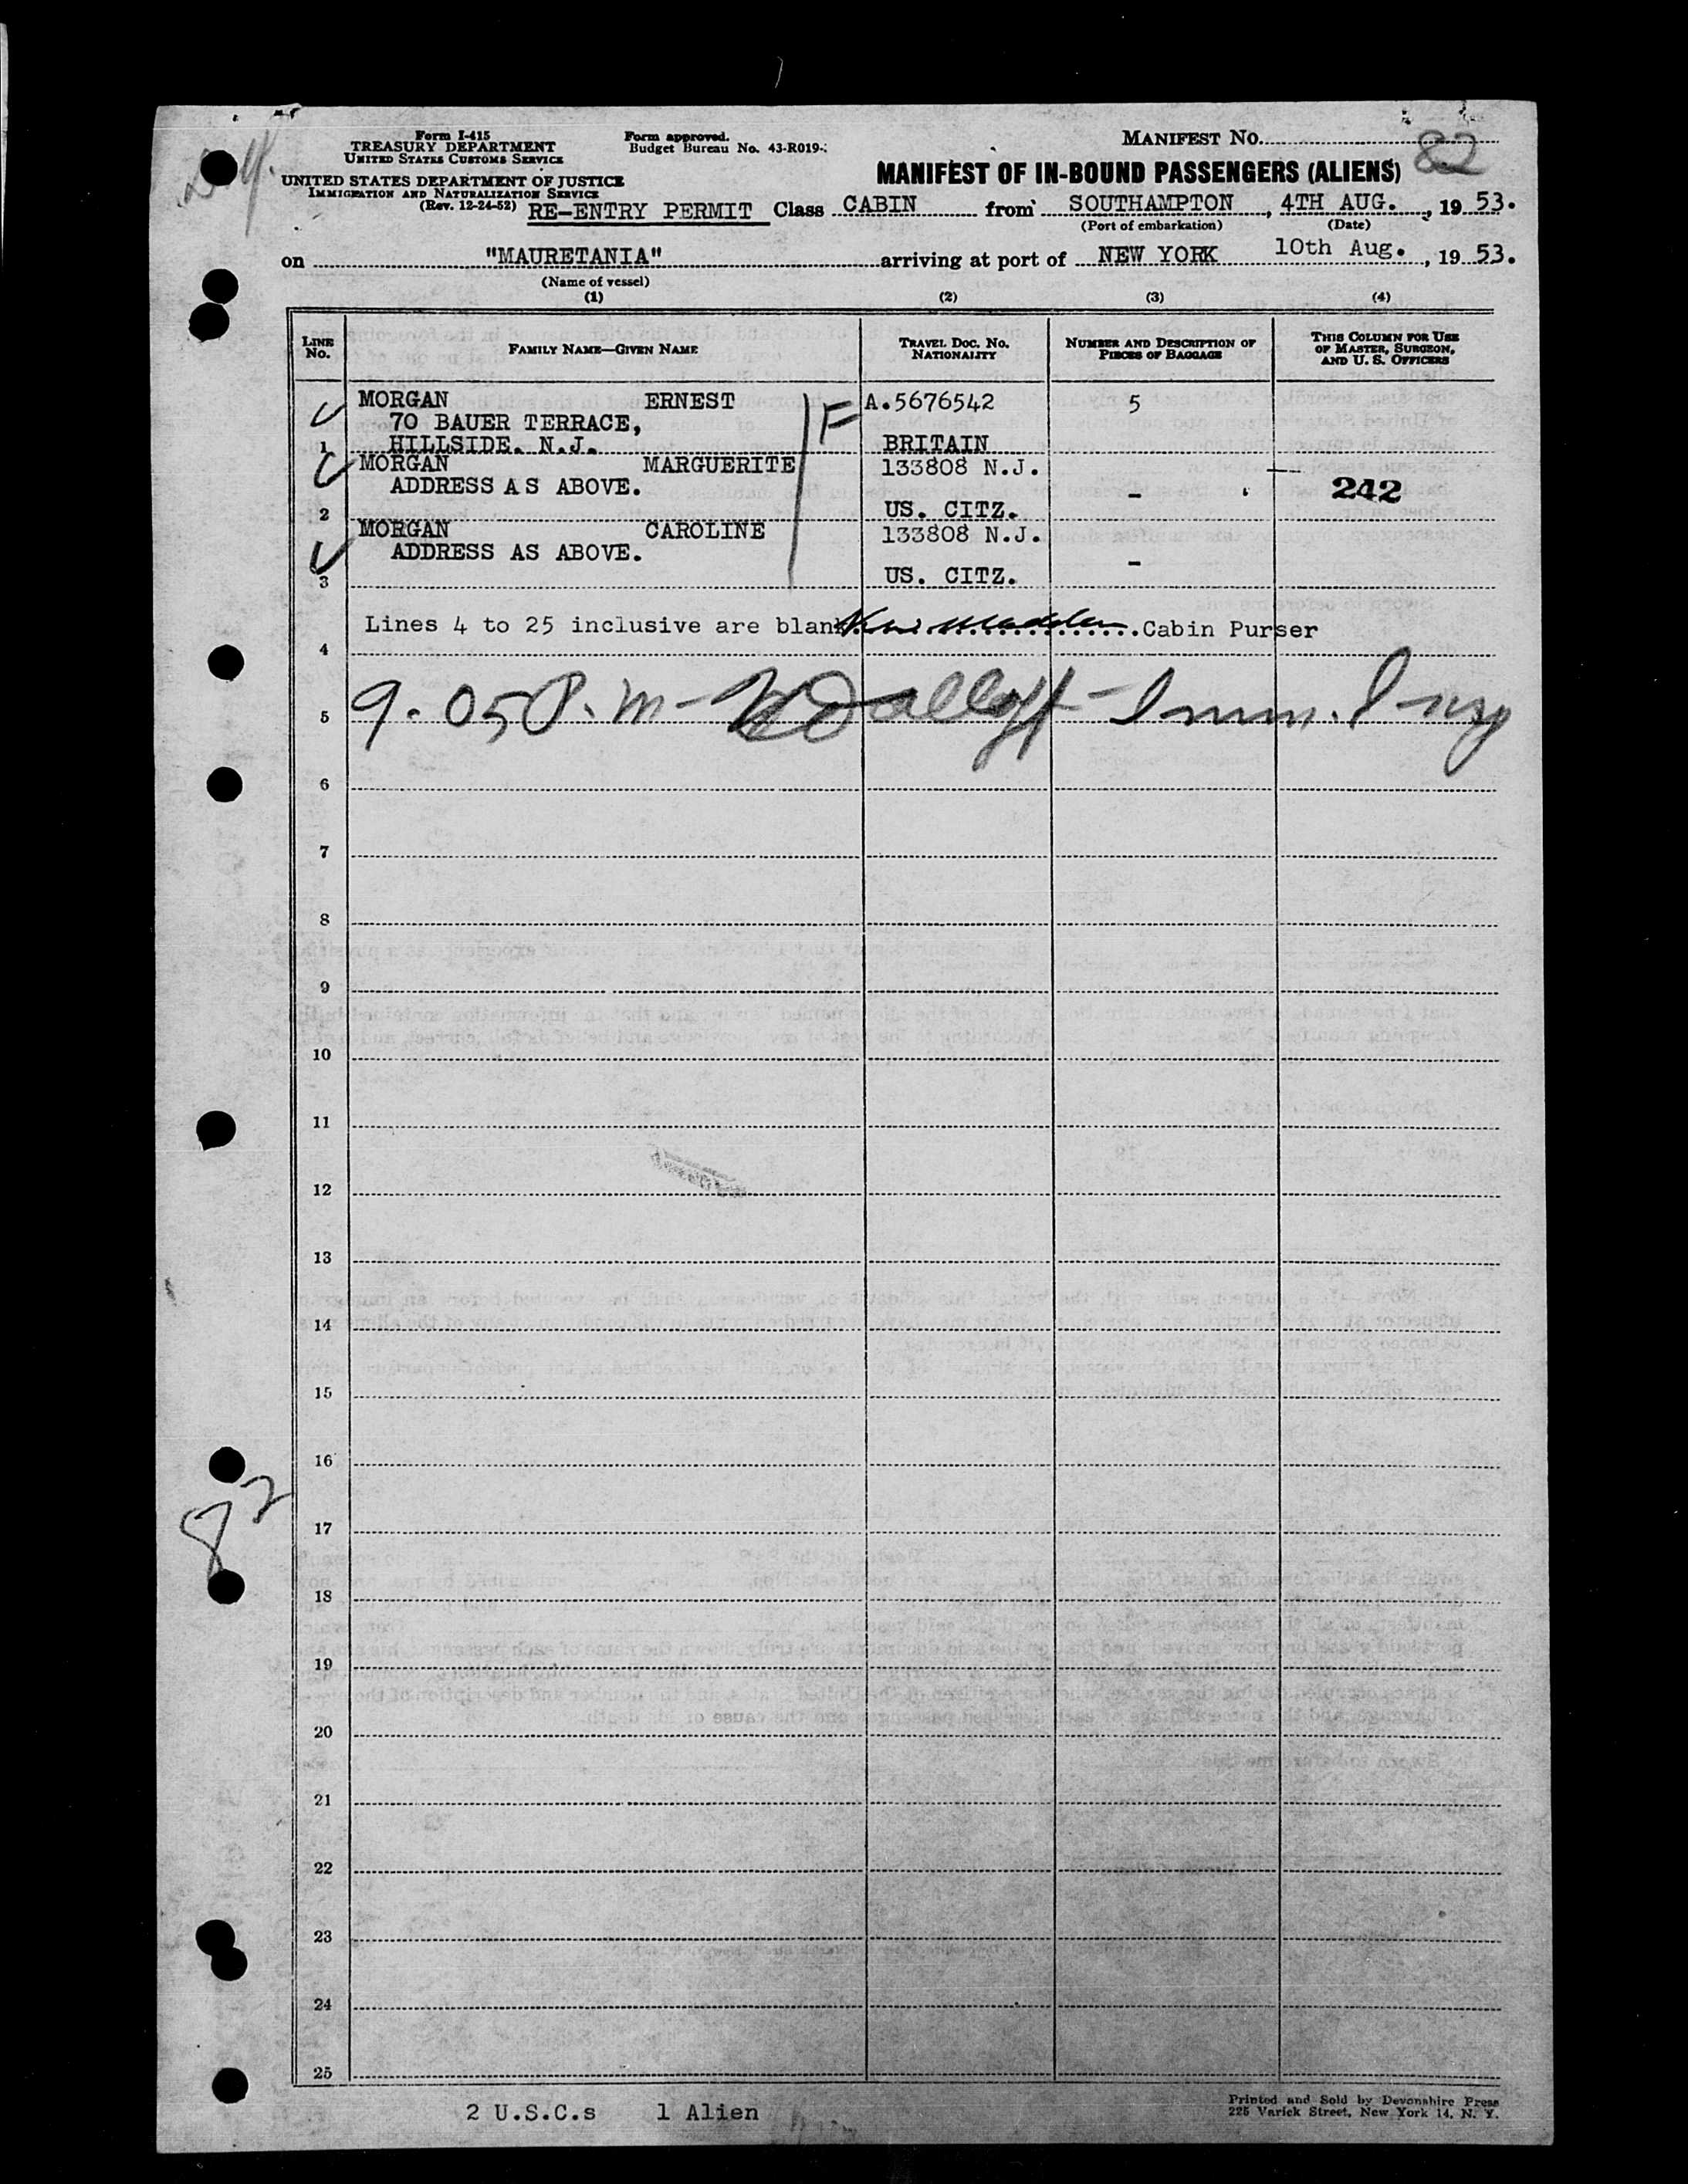 Form I-415
TREASURY DEPARTMENT
UNITED STATES CUSTOMS SERVICE
UNITED STATES DEPARTMENT OF JUSTICE
IMMIGRATION AND NATURALIZATION SERVICE
(Rev. 12-24-52)
Form approved.
Budget Bureau No. 43-R019-
MANIFEST No. 82
MANIFEST OF IN-BOUND PASSENGERS (ALIENS)
RE-ENTRY PERMIT Class CABIN from SOUTHAMPTON, 4TH AUG., 19 53.
(Port of embarkation) (Date)
on "MAURETANIA" arriving at port of NEW YORK 10th Aug., 19 53.
(Name of vessel)
(1) (2) (3) (4)
LINE No. FAMILY NAME—GIVEN NAME TRAVEL DOC. NO. NATIONALITY NUMBER AND DESCRIPTION OF PIECES OF BAGGAGE THIS COLUMN FOR USE OF MASTER, SURGEON, AND U. S. OFFICERS
MORGAN ERNEST F A.5676542 5
70 BAUER TERRACE,
1 HILLSIDE. N.J. BRITAIN
MORGAN MARGUERITE 133808 N.J.
ADDRESS AS ABOVE. - 242
2 US. CITZ.
MORGAN CAROLINE 133808 N.J.
ADDRESS AS ABOVE. -
3 US. CITZ.
Lines 4 to 25 inclusive are blank Cabin Purser
4
9.05 P.m - Imm. Insp
5
6
7
8
9
10
11
12
13
14
15
16
82
17
18
19
20
21
22
23
24
25
2 U.S.C.s 1 Alien
Printed and Sold by Devonshire Press
225 Varick Street, New York 14, N. Y.